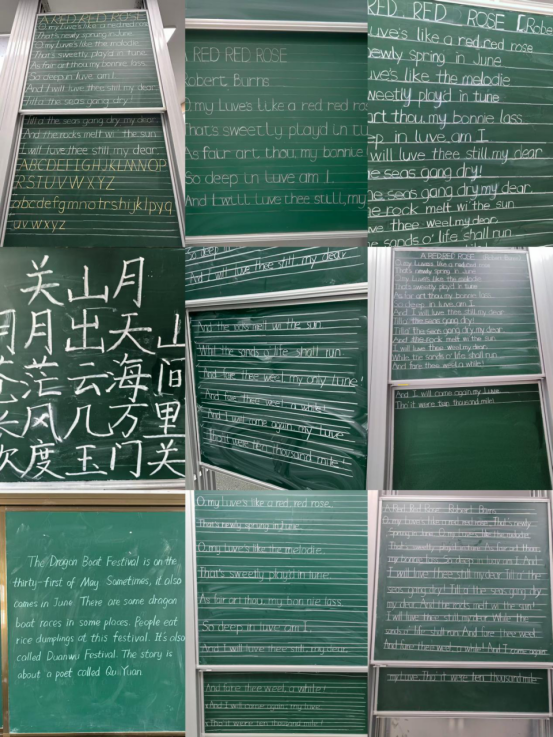 A RED RED ROSE
O my Luve's like a red, red rose
That's newly sprung in June
O my Luve's like the melodie
That's sweetly play'd in tune
As fair art thou my bonnie lass
So deep in luve am I
And I will love thee still my dear
Till a' the seas gang dry
Till a' the seas gang dry my dear
And the rocks melt wi' the sun
I will love thee still my dear
ABCDEFGHJKLMNOP
RSTUVWXYZ
uvwxyz
A RED RED ROSE
Robert Burns
O my Luve's like a red red ros
That's sweetly play'd in tu
As fair art thou, my bonnie
So deep in luve am I
And I will luve thee still, my
RED RED ROSE [Robe
uve's like a red,red rose
ewly sprung in June
uve's like the melodie
weetly play'd in tune
art thou my bonnie lass
ep in luve am I
will luve thee still my dear
he seas gang dry!
he seas gang dry my dear
he rock melt wi the sun
ve thee weel my dear
he sands o' life shall run
关山月
明月出天山
苍茫云海间
长风几万里
吹度玉门关
And I will luve thee still my dear
And the rocks melt wi' the sun
While the sands o' life shall run
And fare thee weel my only luve!
And fare thee weel a while!
And I will come again, my luve
Tho it were ten thousand mile!
A RED RED ROSE
O my Luve's like a red,red rose
That's newly sprung in June
O my Luve's like the melodie
That's sweetly play'd in tune
As fair art thou my bonnie lass
So deep in luve am I
And I will luve thee still my dear
Till a' the seas gang dry
Till a' the seas gang dry my dear
And the rocks melt wi' the sun
I will luve thee still my dear
While the sands o' life shall run
And fare thee weel a while!
And I will come again my luve
Tho it were ten thousand mile!
The Dragon Boat Festival is on the
thirty-first of May. Sometimes, it also
comes in June. There are some dragon
boat races in some places. People eat
rice dumplings at this festival. It's also
called Duanwu Festival. The story is
about a poet called Qu Yuan.
O my Luve's like a red, red rose,
That's newly sprung in June
O my luve's like the melodie
That's sweetly play'd in tune
As fair art thou, my bonnie lass
So deep in luve am I
And I will luve thee still my dear
And fare thee weel, a while!
And I will come again, my luve
Tho it were ten thousand mile!
A Red Red Rose Robert Burns
O my Luve's like a red red rose That's newly
sprung in June O my Luve's like the melodie
That's sweetly play'd in tune As fair art thou
my bonnie lass So deep in luve and I And
I will luve thee still my dear Till a' the
seas gang dry! Till a' the seas gang dry
my dear And the rocks melt wi' the sun!
I will luve thee still my dear While the
sands o' life shall run And fare thee weel
And fare thee weel, a while! And I come again
my Luve Tho it were ten thousand mile